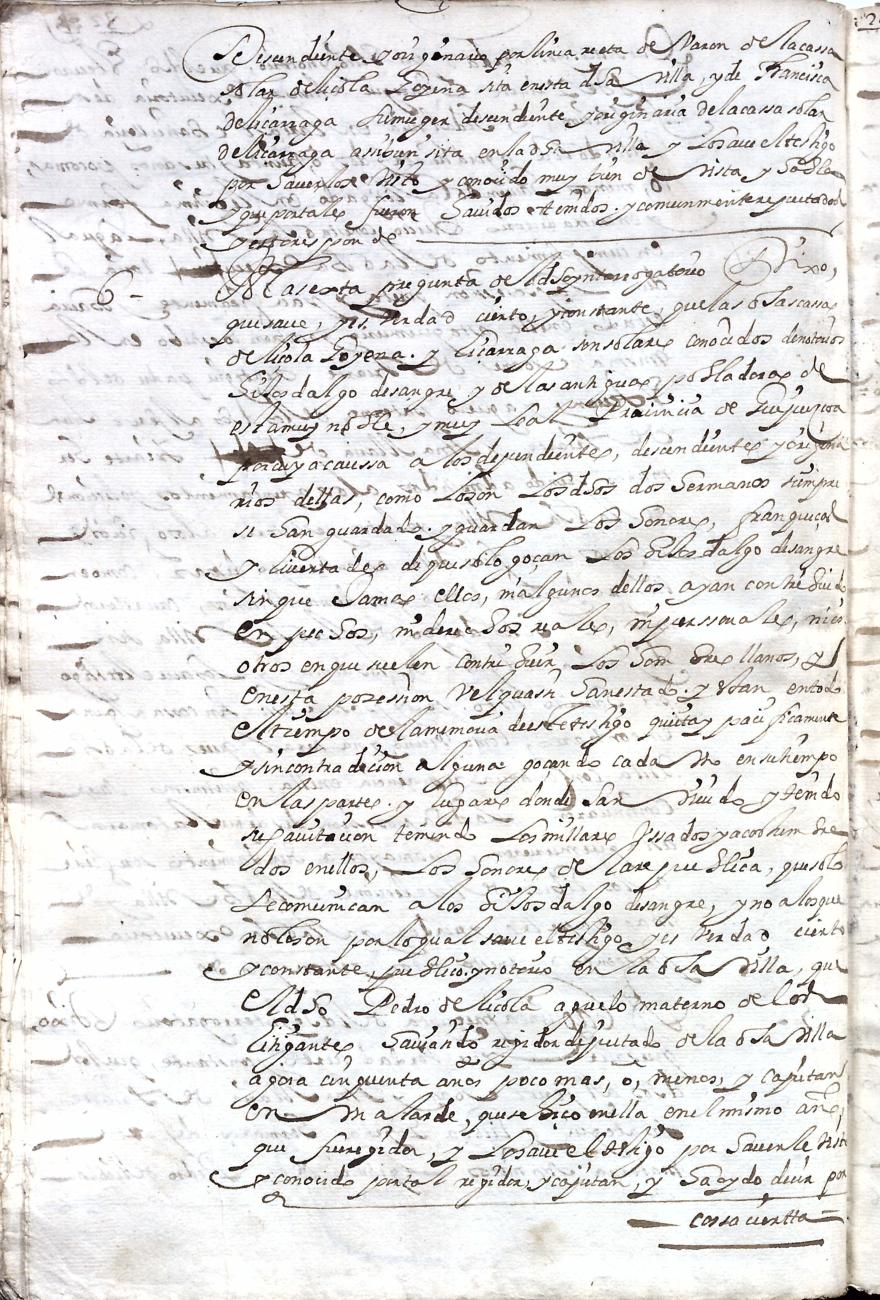 Descendiente y originario por linea recta de Varon de la cassa
solar de licola Goyena sita en esta dha Villa, y de Francisca
de licarraga su muger descendiente y originaria de la cassa solar
de licarraga assi bien sita en la dha Villa y lo saue el testigo
por Sauerlos Visto y conocido muy bien de Vista y habla
y que por tales fueron hauidos tenidos y comunmente reputados
y esto responde
6 - A la sexta pregunta del dho ynterrogatorio Dixo,
que saue, y es Verdad cierto, y constante, que las dhas cassas
de licola Goyena y Licarraga son solares conocidos de notorios
hijos dalgo de sangre y de las antiguas pobladoras de
esta muy noble, y muy Leal Prouincia de Guipuzcoa
por cuya caussa a los dependientes, descendientes y origina
rios dellas, como lo son los dhos dos hermanos siempre
se han guardado y guardan los honores, franqueças
y liuertades de que solo goçan los hijos dalgo de sangre
sin que Jamas ellos, ni algunos dellos ayan contribuido
en pechos, ni derechos reales, ni perssonales, ni en
otros en que suelen contribuir los hombres llanos, y
en esta possession Vel quasi han estado y estan en todo
el tiempo de la memoria deeste testigo quieta y pacificamente
y sin contradicion alguna goçando cada Vno en su tiempo
en las partes y lugares donde han Viuido y tenido
su hauitacion teniendo los millares Vssados y acostumbra
dos en ellos, los honores de la republica, que solo
se comunican a los hijos dalgo de sangre, y no a los que
no lo son por lo qual saue el testigo y es Verdad cierto
y constante, publico y notorio en la dha Villa, que
el dho Pedro de licola aguelo materno de los
litigantes hauiendo regidor diputado de la dha Villa
agora cinquenta años poco mas, o, menos, y capitan
en alarde, que se hiço en ella en el mismo año,
que fue regidor, y lo saue el testigo por Sauerle Visto
y conocido por tal regidor, y capitan, y ha oydo decir por
cossa ciertta